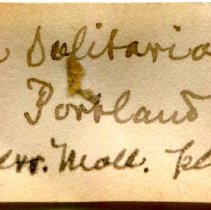 Solitaria
Portland
Moll. pl